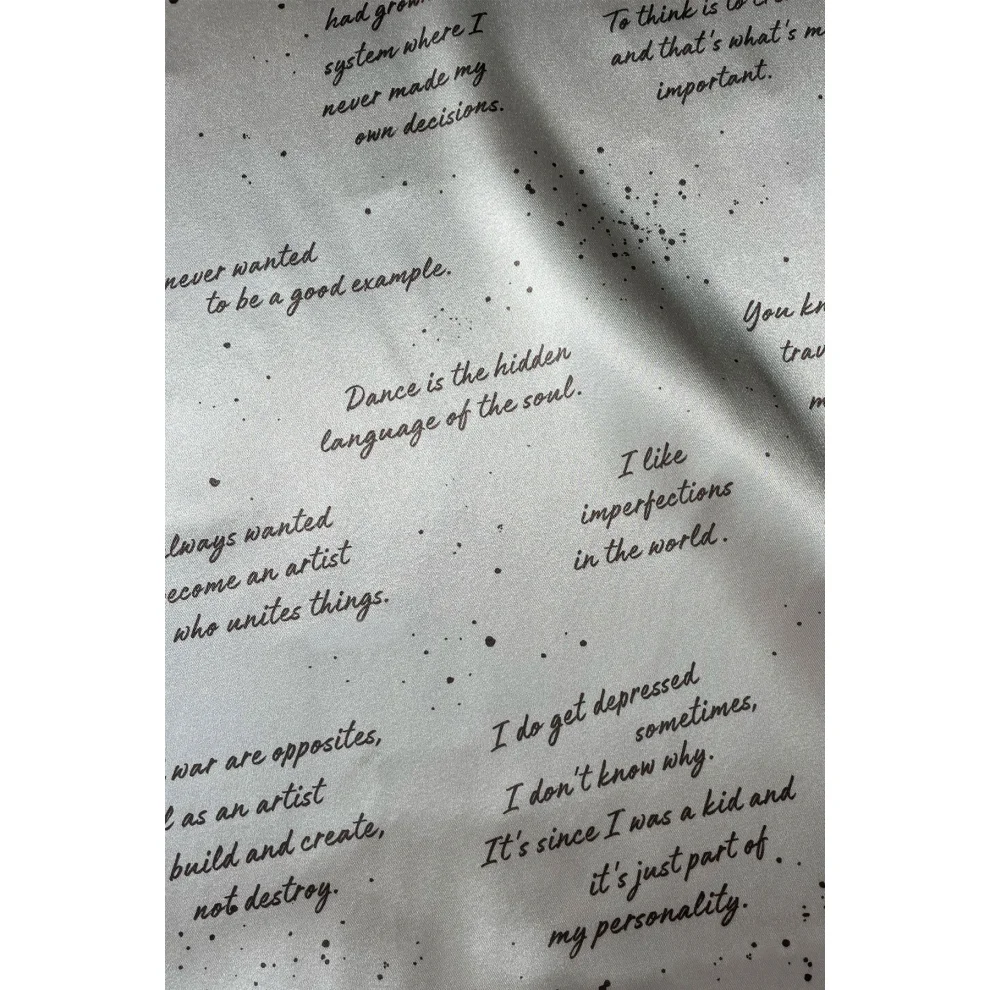 had grown
system where I
never made my
own decisions.
To think is to
and that's what's
important.
never wanted
to be a good example.
You
Dance is the hidden
language of the soul.
I like
imperfections
in the world.
always wanted
become an artist
who unites things.
war are opposites,
as an artist
build and create,
not destroy.
I do get depressed
sometimes,
I don't know why.
It's since I was a kid and
it's just part of
my personality.